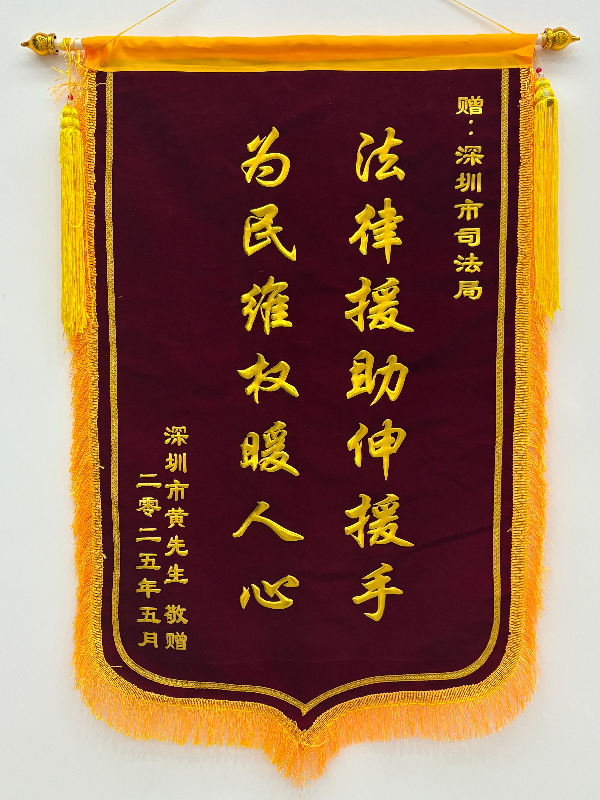 赠：深圳市司法局
法律援助伸援手
为民维权暖人心
深圳市黄先生 敬赠
二零二五年五月